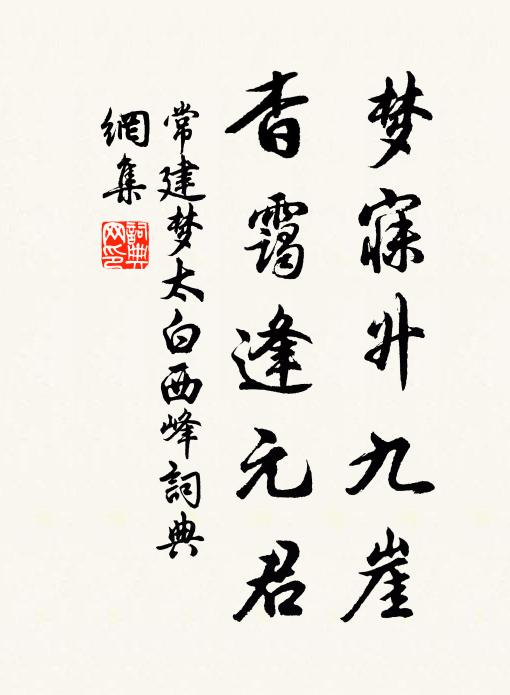 梦寐升九崖
杳靄逢元君
常建梦太白西峰詞典
網集
詞典
网印